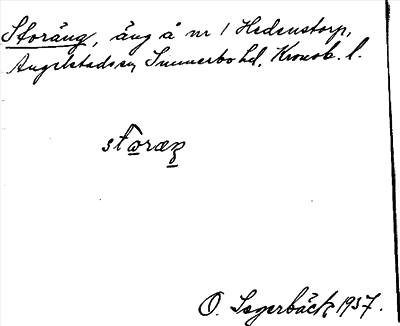 Storäng, äng å nr 1 Hedenstorp,
Angelstads sn, Sunnerbo hd, Kronob. l.
O. Lagerbäck, 1937.